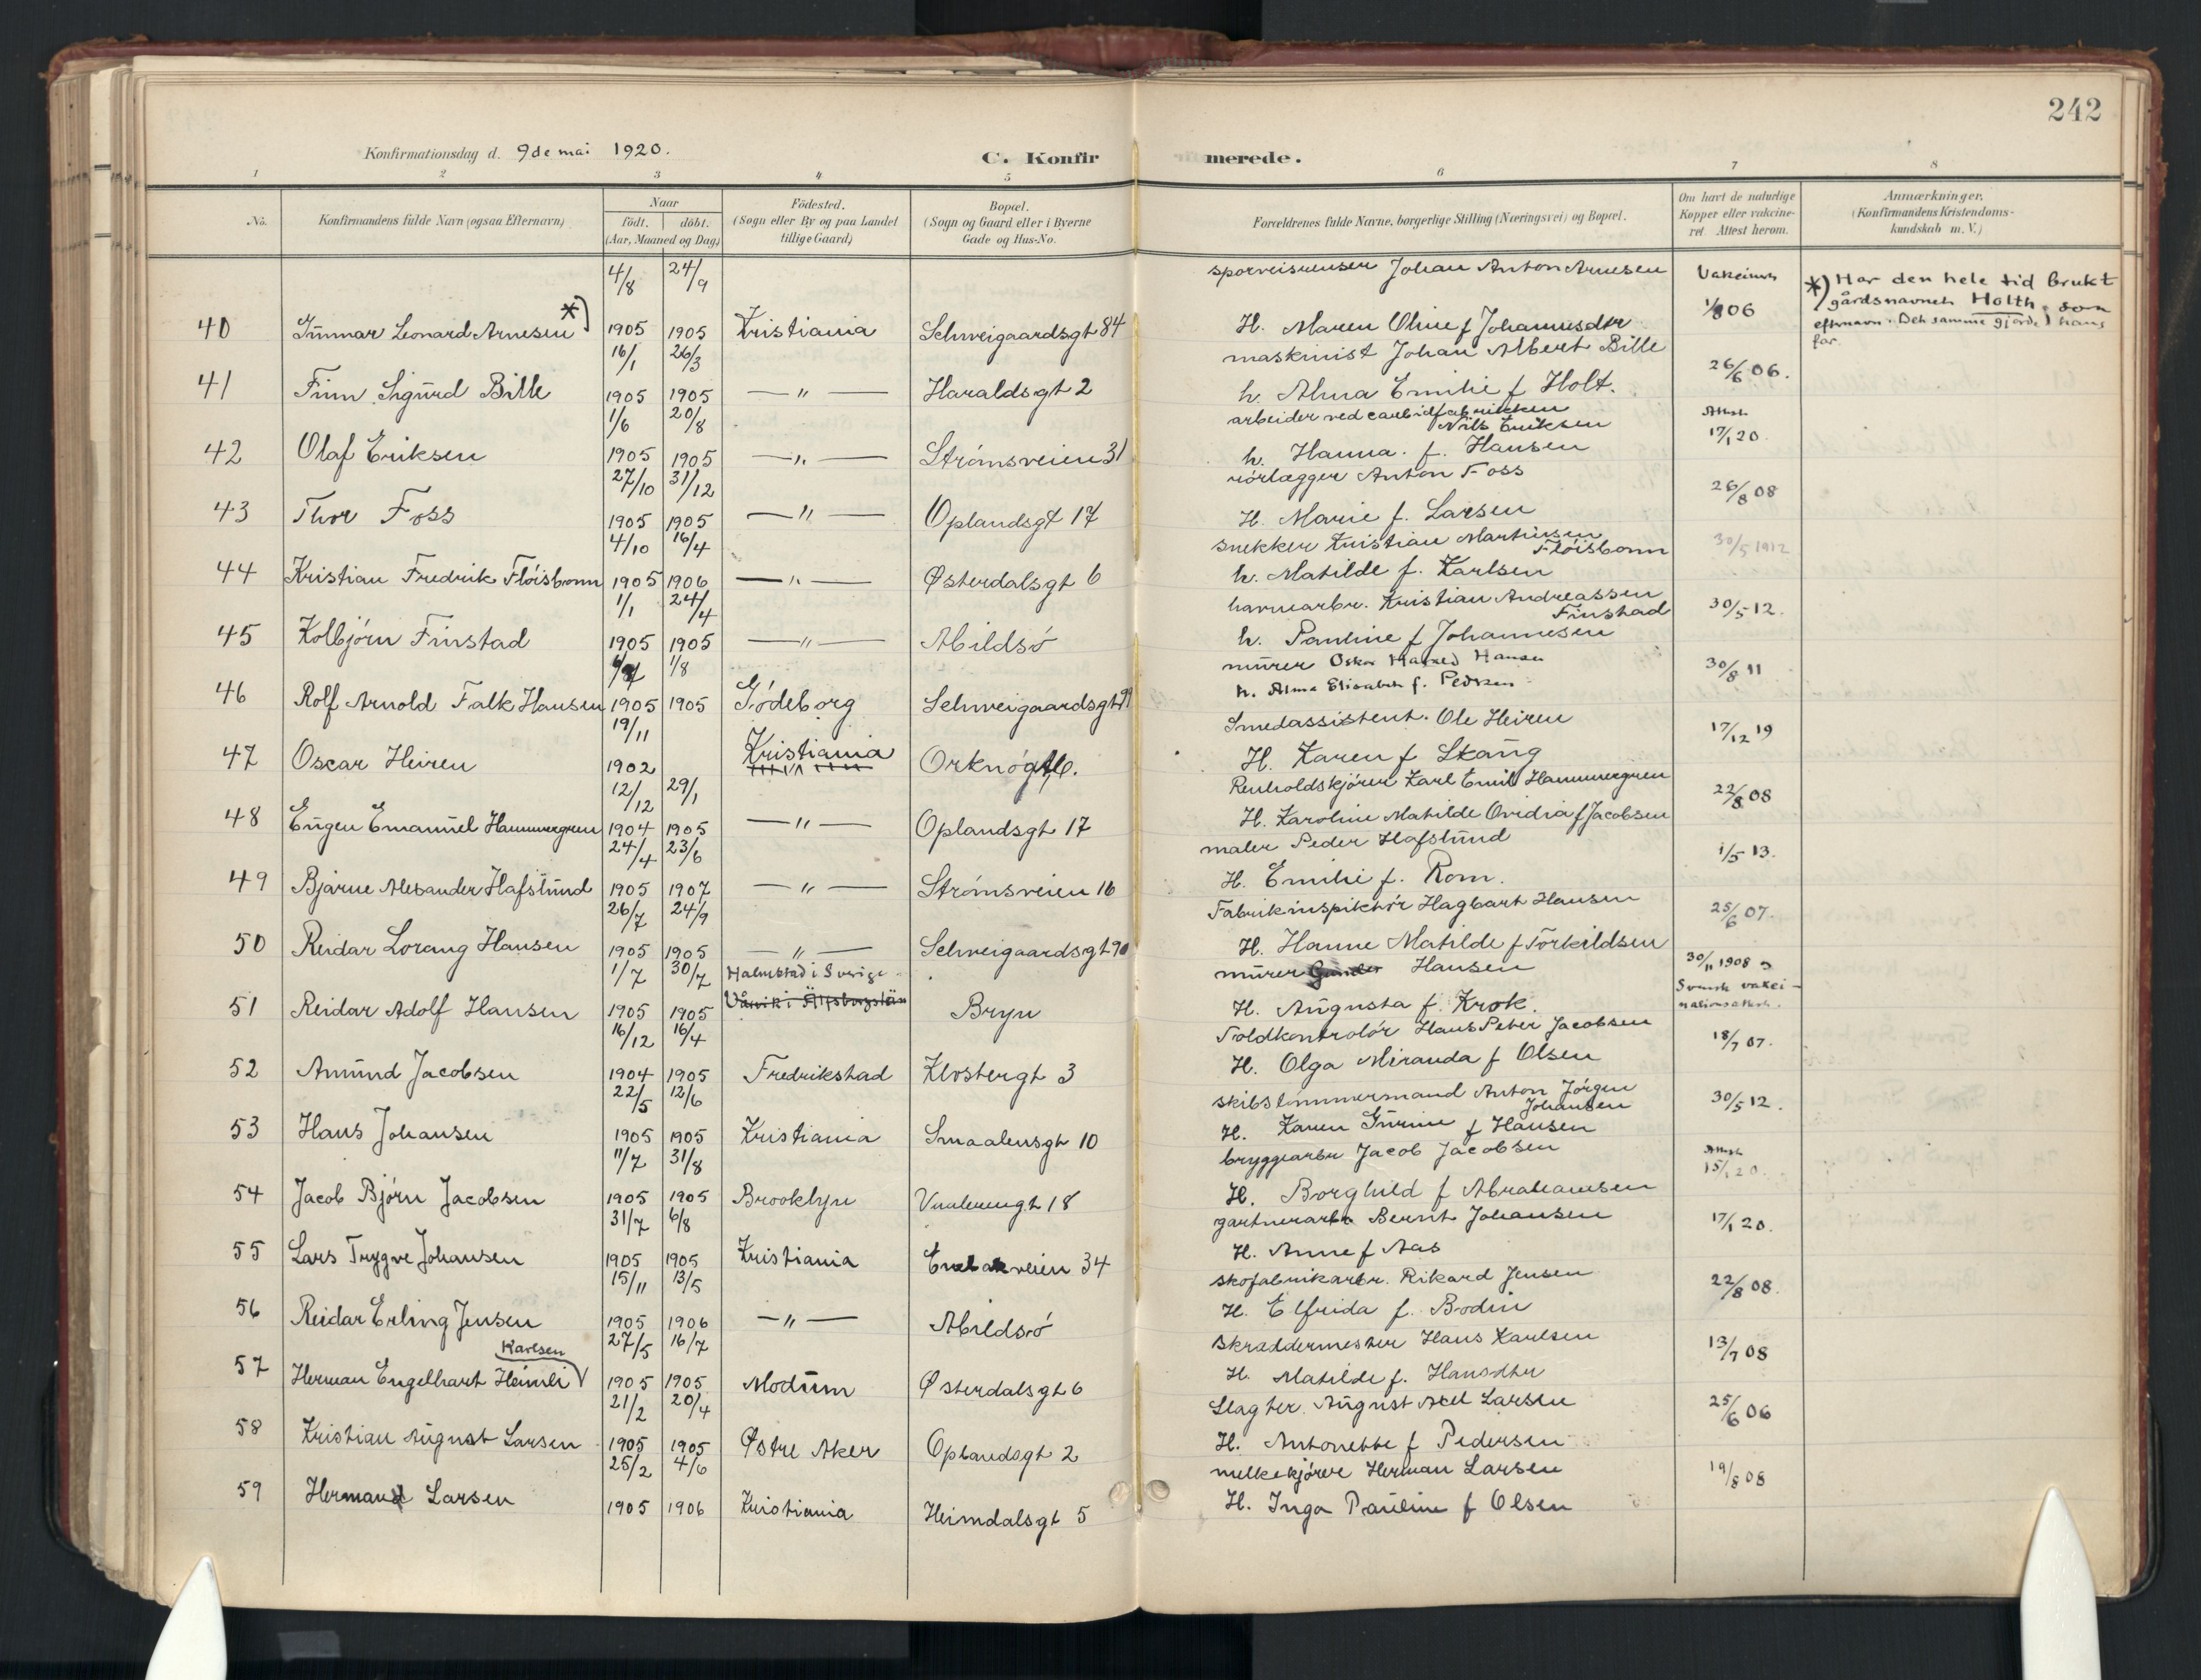 242
Konfirmationsdag d. 9de mai 1920.
C. Konfirmerede.
1 2 3 4 5 6 7 8
No. Konfirmandens fulde Navn (ogsaa Efternavn) Naar födt. döbt. (Aar, Maaned og Dag) Födested. (Sogn eller By og paa Landet tillige Gaard) Bopæl. (Sogn og Gaard eller i Byerne Gade og Hus-No. Forældrenes fulde Navne, borgerlige Stilling (Næringsvei) og Bopæl. Om havt de naturlige Kopper eller vakcineret. Attest herom. Anmærkninger. (Konfirmandens Kristendomskundskab m. V.)
4/8 24/9 Johan Anton Arnesen
40 Gunnar Leonard Arnesen *) 1905 1905 Kristiania Schweigaardsgt 84 H. Maren Oline f Johannesdtr 06
*) Har den hele tid brukt
gårdsnavnet Holth, som
efternavn. Det samme gjorde hans
far.
16/1 26/3 maskinist Johan Albert Bille
41 Finn Sigurd Bille 1905 1905 — " — Haraldsgt 2 h. Alma Emilie f Holt. 26/6 06.
1/6 20/8 arbeider ved carbidfabrikken
Nils Eriksen Attest
42 Olaf Eriksen 1905 1905 — " — Strömsveien 31 h. Hanna. f. Hansen 17/1 20.
27/10 31/12 rörlægger Anton Foss
43 Thor Foss 1905 1905 — " — Oplandsgt 17 H. Marie f. Larsen 26/8 08
4/10 16/4 snekker Kristian Martinsen
Flöisbonn 30/5 1912
44 Kristian Fredrik Flöisbonn 1905 1906 — " — Østerdalsgt 6 h. Matilde f. Karlsen
1/1 24/4 havnearbr. Kristian Andreassen
Finstad 30/5 12.
45 Kolbjörn Finstad 1905 1905 — " — Abildsö h. Pauline f Johannesen
1/8 mürer Oskar Hansen 30/8 11
46 Rolf Arnold Falk Hansen 1905 1905 Gödeborg Schweigaardsgt h. Alma Elisabeth f. Pedersen
19/11 Smedassistent. Ole Heiren 17/12 19
47 Oscar Heiren 1902 Kristiania H. Karen f Skaug
12/12 29/1 Renholdskjörer Karl Emil Hammergren 22/8 08
48 Eugen Emanuel Hammergren 1904 1905 — " — Oplandsgt 17 H. Karoline Matilde Ovidia f Jacobsen
24/4 23/6 maler Peder Hafslund 1/5 13.
49 Bjarne Alexander Hafslund 1905 1907 — " — Strömsveien 16 H. Emilie f. Rom.
26/7 24/9 Fabrikinspiktör Hagbart Hansen 25/6 07.
50 Reidar Lorang Hansen 1905 1905 — " — Schweigaardsgt 90 H. Hanne Matilde f Torkildsen
1/7 30/7 Halmstad i Sverige mürer Hansen 30/11 1908
51 Reidar Adolf Hansen 1905 1905 Bryn H. Augusta f. Krok. Svensk vakcinationsattest.
16/12 16/4 Toldkontrolör Hans Peter Jacobsen 18/7 07.
52 Amund Jacobsen 1904 1905 Fredrikstad Klostergt 3 H. Olga Miranda f Olsen
22/5 12/6 skibstömmermand Anton Jörgen
Johansen 30/5 12.
53 Hans Johansen 1905 1905 Kristiania Smaalensgt 10 H. Karen Gurine f Hansen
11/7 31/8 bryggearbr Jacob Jacobsen Attest 15/1 20.
54 Jacob Björn Jacobsen 1905 1905 Brooklyn Vaalerengt 18 H. Borghild f Abrahamsen
31/7 6/8 gartnerarbr Bernt Johansen 17/1 20.
55 Lars Trygve Johansen 1905 1905 Kristiania Enebakveien 34 H. Anne f Aas
15/11 13/5 skofabrikarbr. Rikard Jensen 22/8 08.
56 Reidar Erling Jensen 1905 1906 — " — Abildsö H. Elfrida f. Bodin
27/5 16/7 skræddermester Hans Karlsen 13/7 08
Karlsen
57 Herman Engelhart Heimli V 1905 1905 Modum Østerdalsgt 6 H. Matilde f. Hansdtr
21/2 20/4 Slagter August Axel Larsen 25/6 06
58 Kristian August Larsen 1905 1905 Østre Aker Oplandsgt 2 H. Antonette f Pedersen
25/2 4/6 melkekjörer Herman Larsen 19/8 08
59 Herman Larsen 1905 1906 Kristiania Heimdalsgt 5 H. Inga Pauline f Olsen